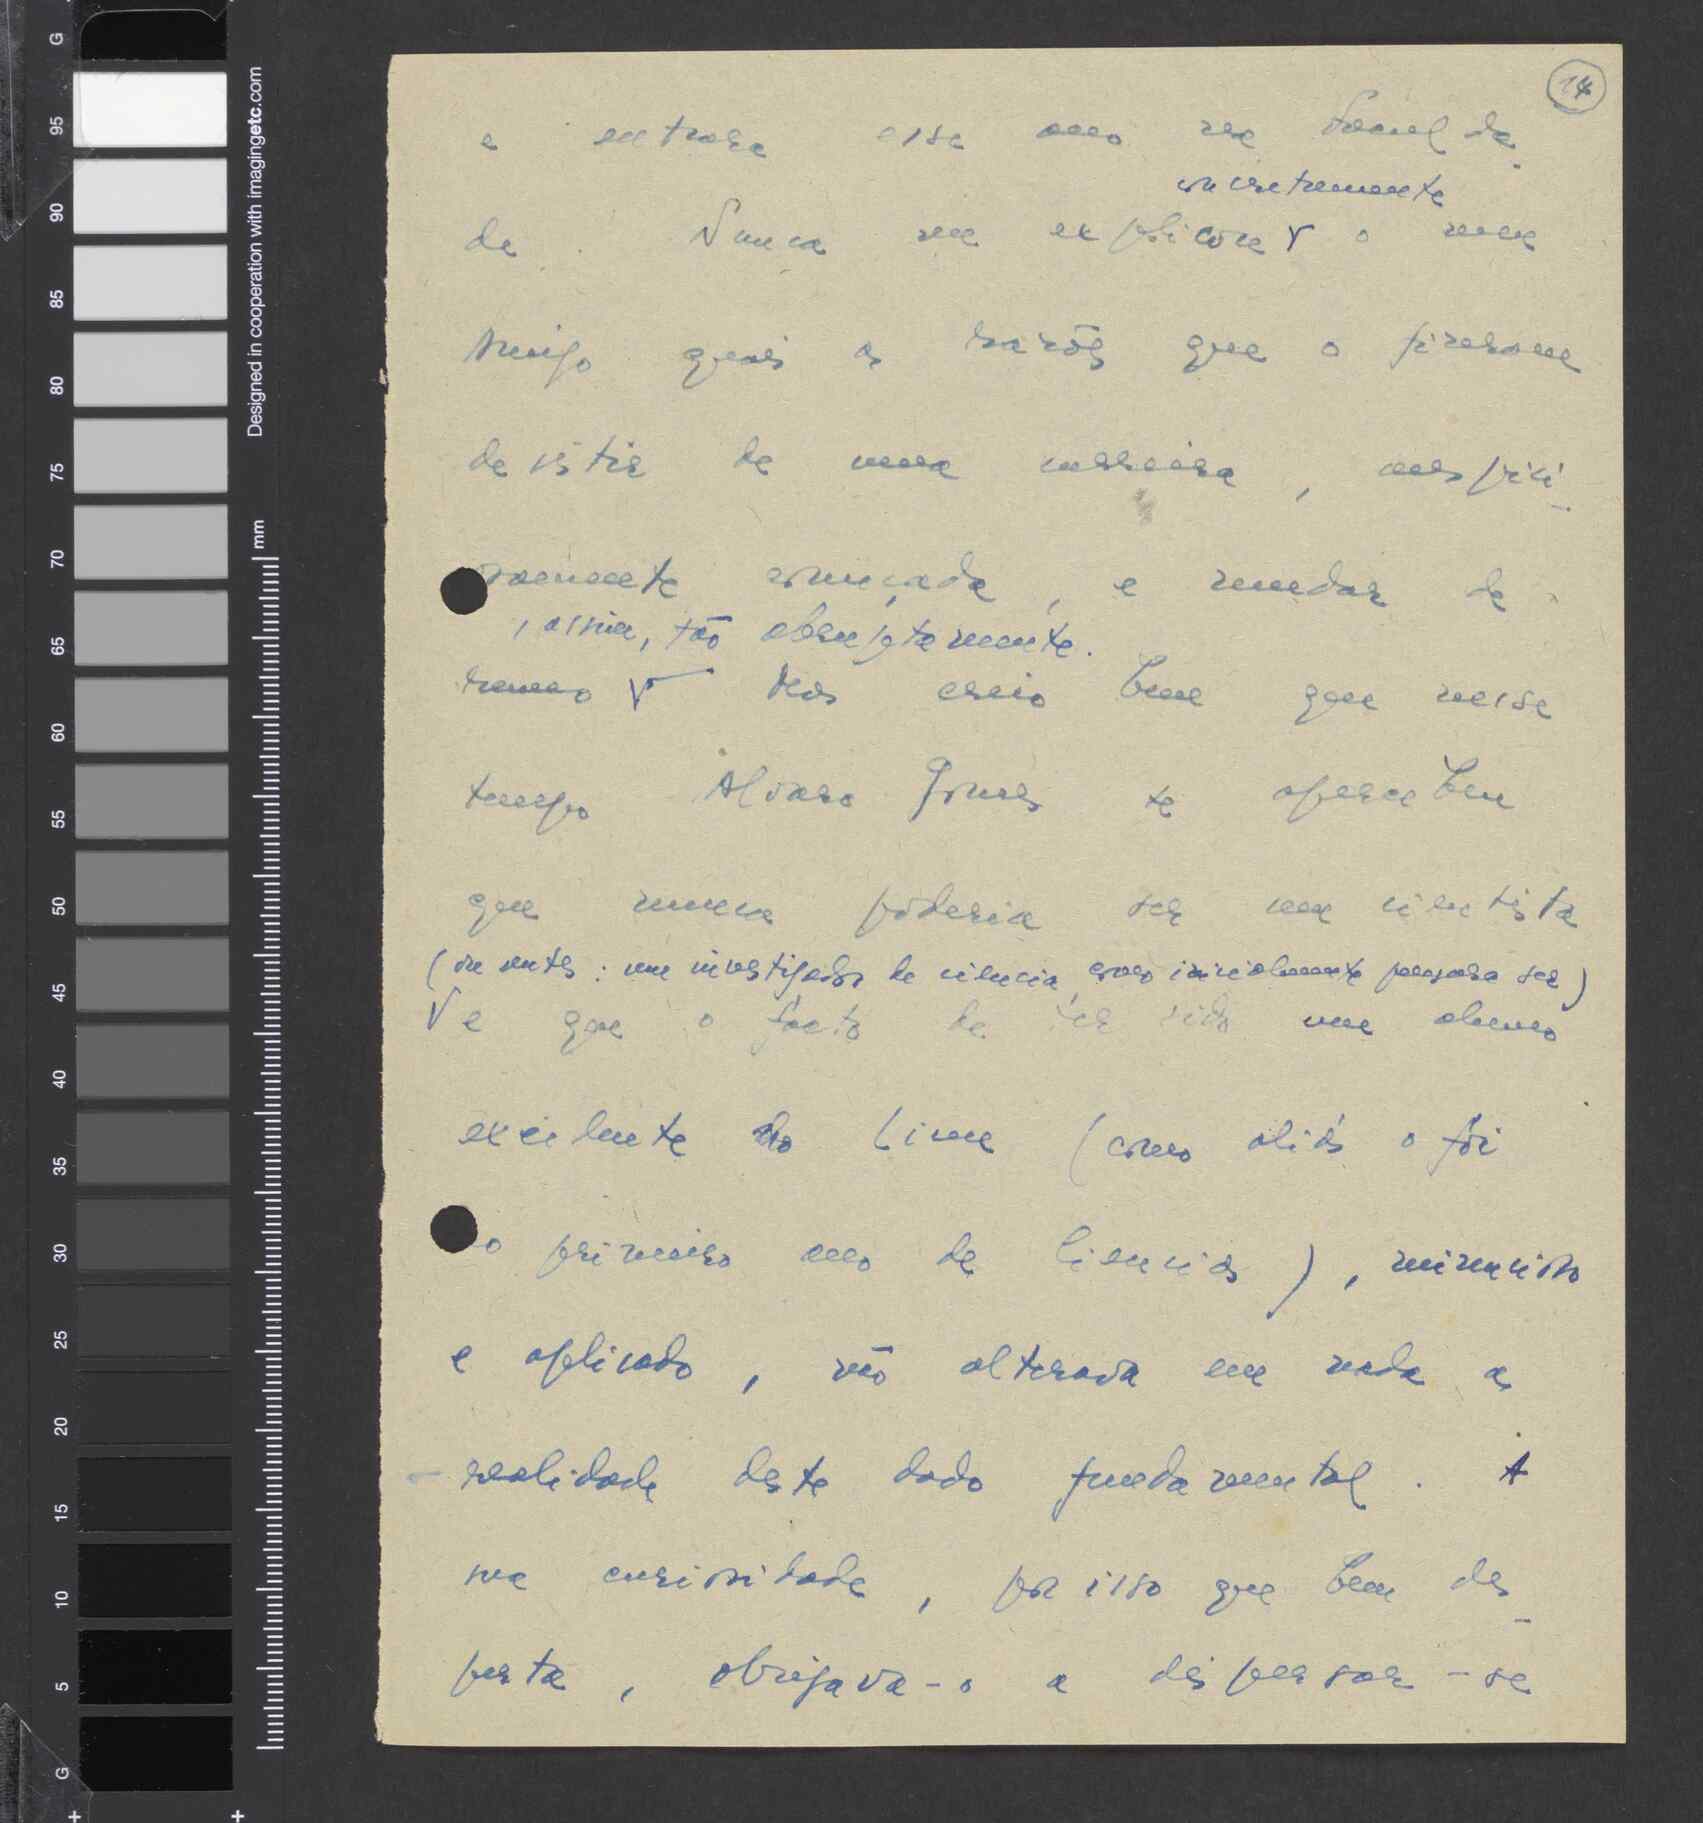 14
e entrara esse ano na Faculda-
concretamente
de. Nunca me explicou V o meu
Amigo quais as razões que o fizeram
desistir de uma carreira, auspici-
osamente começada, e mudar de
, assim, tão abruptamente.
rumo V Mas creio bem que nesse
tempo Alvaro Gomes se apercebeu
que nunca poderia ser um cientista
(ou antes: um investigador de ciencia, como inicialmente pensara ser)
V e que o facto de ter sido um aluno
excelente no Liceu (como aliás o foi
no primeiro ano de Ciencias), minucioso
e aplicado, não alterava em nada a
realidade deste dado fundamental. A
sua curiosidade, por isso que bem des-
perta, obrigava-o a dispersar-se
Designed in cooperation with imagingetc.com
mm
G
95
90
85
80
75
70
65
60
55
50
45
40
35
30
25
20
15
10
5
G